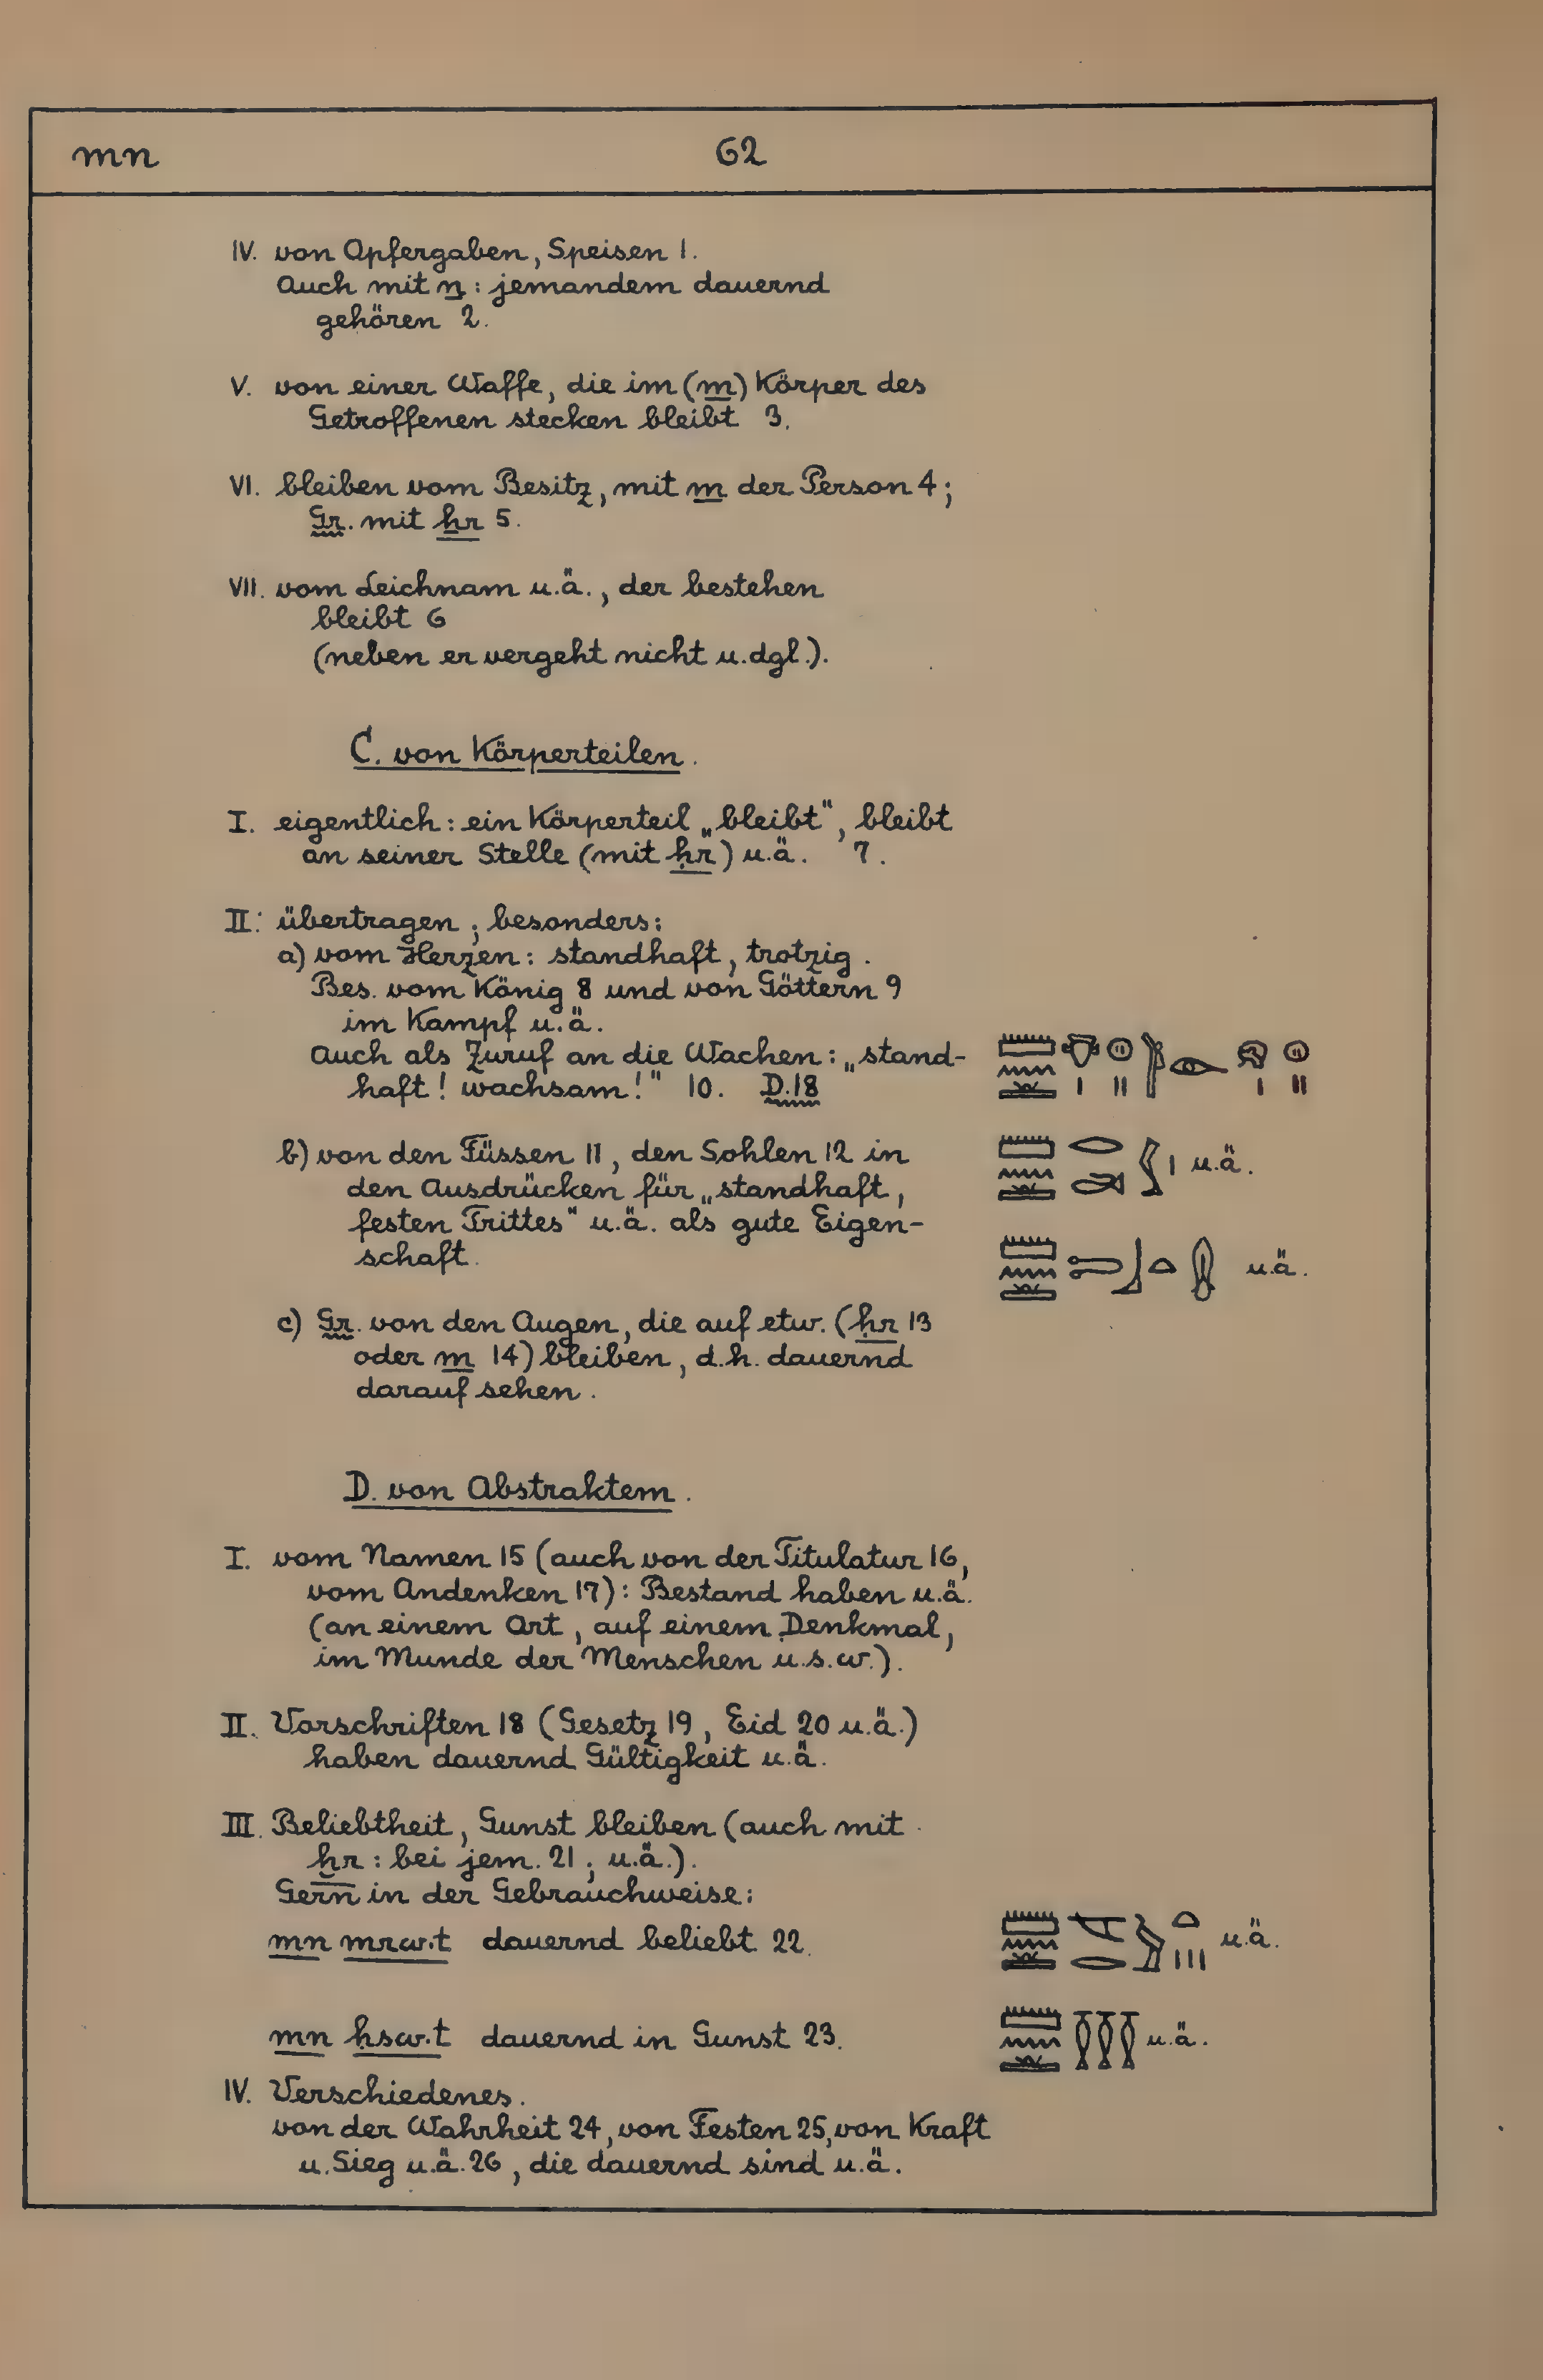 mn 62
IV. von Opfergaben, Speisen 1.
Auch mit n : jemandem dauernd
gehören 2.
V. von einer Waffe, die im (m) Körper des
Getroffenen stecken bleibt 3.
VI. bleiben vom Besitz, mit m der Person 4 ;
Gr. mit ḥr 5.
VII. vom Leichnam u.ä., der bestehen
bleibt 6
(neben er vergeht nicht u.dgl.).
C. von Körperteilen.
I. eigentlich : ein Körperteil „bleibt“, bleibt
an seiner Stelle (mit ḥr) u.ä. 7.
II. übertragen ; besonders :
a) vom Herzen : standhaft, trotzig.
Bes. vom König 8 und von Göttern 9
im Kampf u.ä.
Auch als Zuruf an die Wachen : „stand-
haft! wachsam!“ 10. D.18
b) von den Füssen 11, den Sohlen 12 in
den Ausdrücken für „standhaft,
festen Trittes“ u.ä. als gute Eigen-
schaft.
u.ä.
u.ä.
c) Gr. von den Augen, die auf etw. (ḥr 13
oder m 14) bleiben, d.h. dauernd
darauf sehen.
D. von Abstraktem.
I. vom Namen 15 (auch von der Titulatur 16,
vom Andenken 17) : Bestand haben u.ä.
(an einem Ort, auf einem Denkmal,
im Munde der Menschen u.s.w.).
II. Vorschriften 18 (Gesetz 19, Eid 20 u.ä.)
haben dauernd Gültigkeit u.ä.
III. Beliebtheit, Gunst bleiben (auch mit
ḫr : bei jem. 21 ; u.ä.).
Gern in der Gebrauchweise :
mn mrw.t dauernd beliebt 22. u.ä.
mn ḥsw.t dauernd in Gunst 23. u.ä.
IV. Verschiedenes.
von der Wahrheit 24, von Festen 25, von Kraft
u. Sieg u.ä. 26, die dauernd sind u.ä.